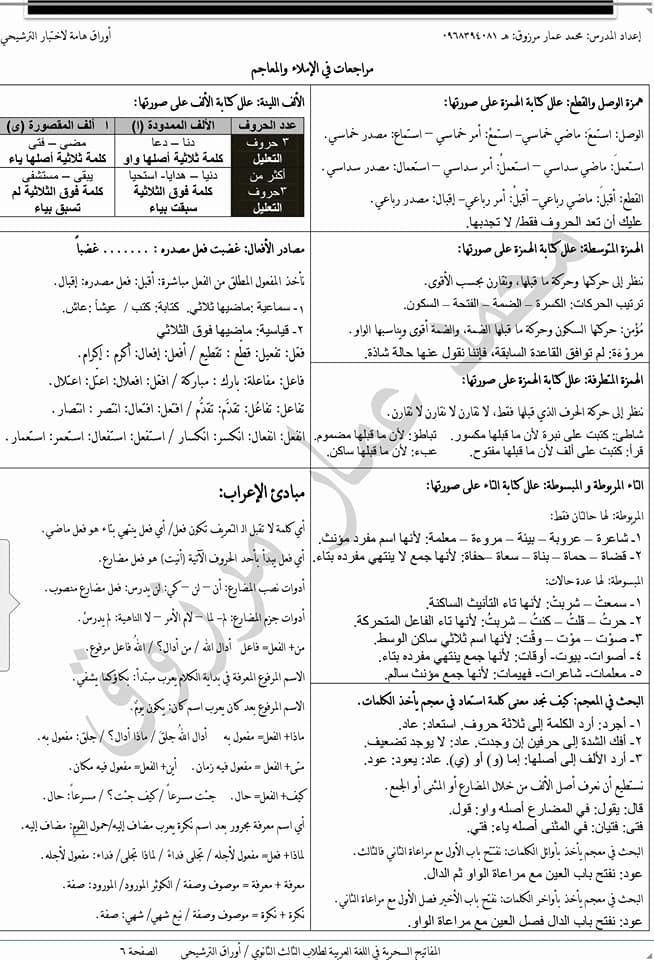 إعداد المدرس: محمد عمار مرزوق: هـ ٠٩٦٨٣٩٤٠٨١
أوراق هامة لاختبار الترشيحي
مراجعات في الإملاء والمعاجم
همزة الوصل والقطع: علل كتابة الهمزة على صورتها:
الوصل: استمعَ: ماضي خماسي– استمعْ: أمر خماسي – استماع: مصدر خماسي.
استعملَ: ماضي سداسي – استعملْ: أمر سداسي – استعمال: مصدر سداسي.
القطع: أقبلَ: ماضي رباعي– أقبلْ: أمر رباعي– إقبال: مصدر رباعي.
عليك أن تعد الحروف فقط/ لا تجدبها.
الهمزة المتوسطة: علل كتابة الهمزة على صورتها:
ننظر إلى حركتها وحركة ما قبلها، ونقارن بحسب الأقوى.
ترتيب الحركات: الكسرة – الضمة – الفتحة – السكون.
مُؤْمن: حركتها السكون وحركة ما قبلها الضمة، والضمة أقوى ويناسبها الواو.
مروءة: لم توافق القاعدة السابقة، فإننا نقول عنها حالة شاذة.
الهمزة المتطرفة: علل كتابة الهمزة على صورتها:
ننظر إلى حركة الحرف الذي قبلها فقط، لا نقارن لا نقارن لا نقارن.
شاطئ: كتبت على نبرة لأن ما قبلها مكسور. تباطؤ: لأن ما قبلها مضموم.
قرأ: كتبت على ألف لأن ما قبلها مفتوح. عبء: لأن ما قبلها ساكن.
التاء المربوطة و المبسوطة: علل كتابة التاء على صورتها:
المربوطة: لها حالتان فقط:
١– شاعرة – عروبة – بيئة – مروءة – معلمة: لأنها اسم مفرد مؤنث.
٢– قضاة – حماة – بناة – سعاة –حفاة: لأنها جمع لا ينتهي مفرده بتاء.
المبسوطة: لها عدة حالات:
١– سمعتْ – شربتْ: لأنها تاء التأنيث الساكنة.
٢– حرتُ – قلتُ – كنتُ – شربتُ: لأنها تاء الفاعل المتحركة.
٣– صوْت – موْت – وقْت: لأنها اسم ثلاثي ساكن الوسط.
٤– أصوات– بيوت– أوقات: لأنها جمع ينتهي مفرده بتاء.
٥– معلمات– شاعرات– فهيمات: لأنها جمع مؤنث سالم.
البحث في المعجم: كيف نجد معنى كلمة استعاد في معجم يأخذ الكلمات.
١– أجرد: أرد الكلمة إلى ثلاثة حروف. استعاد: عاد.
٢– أفك الشدة إلى حرفين إن وجدت. عاد: لا يوجد تضعيف.
٣– أرد الألف إلى أصلها: إما (و) أو (ي). عاد: يعود: عود.
نستطيع أن نعرف أصل الألف من خلال المضارع أو المثنى أو الجمع.
قال: يقول: في المضارع أصله واو: قول.
فتى: فتيان: في المثنى أصله ياء: فتي.
البحث في معجم يأخذ بأوائل الكلمات: نفتح باب الأول مع مراعاة الثاني فالثالث.
عود: نفتح باب العين مع مراعاة الواو ثم الدال.
البحث في معجم يأخذ بأواخر الكلمات: نفتح باب الأخير فصل الأول مع مراعاة الثاني.
عود: نفتح باب الدال فصل العين مع مراعاة الواو.
الألف اللينة: علل كتابة الألف على صورتها:
عدد الحروف الألف الممدودة (ا) ا ألف المقصورة (ى)
٣ حروف دنا – دعا مضى – فتى
التعليل كلمة ثلاثية أصلها واو كلمة ثلاثية أصلها ياء
أكثر من دنيا – هدايا– استحيا يبقى – مستشفى
٣حروف كلمة فوق الثلاثية كلمة فوق الثلاثية لم
التعليل سبقت بياء تسبق بياء
مصادر الأفعال: غضبت فعل مصدره : ....... غضباً
نأخذ المفعول المطلق من الفعل مباشرة: أقبل: فعل مصدره: إقبال.
١– سماعية: ماضيها ثلاثي. كتابة: كتب / عيشاً :عاش.
٢– قياسية: ماضيها فوق الثلاثي
فعّل: تفعيل: قطّع : تقطيع / أفعل: إفعال: أكرم : إكرام.
فاعل: مفاعلة: بارك : مباركة / افعلّ: افعلال: اعتلّ: اعتلال.
تفاعل: تفاعُل: تقدَّم: تقدُّم / افتعل: افتعال: انتصر : انتصار.
انفعل: انفعال: انكسر: انكسار / استفعل: استفعال: استعمر: استعمار.
مبادئ الإعراب:
أي كلمة لا تقبل الـ التعريف تكون فعل/ أي فعل ينتهي بتاء هو فعل ماضي.
أي فعل يبدأ بأحد الحروف الآتية (أنيت) هو فعل مضارع.
أدوات نصب المضارع: أن – لن – كي: لن يدرس: فعل مضارع منصوب.
أدوات جزم المضارع: لم– لما – لام الأمر – لا الناهية: لم يدرسْ.
من+ الفعل= فاعل أدال الله / من أدال؟ / اللهُ فاعل مرفوع.
الاسم المرفوع المعرفة في بداية الكلام يعرب مبتدأ: بكاؤكما يشفي.
الاسم المرفوع بعد كان يعرب اسم كان: يكون يومٌ.
ماذا+ الفعل= مفعول به أدال اللهُ جلق / ماذا أدال؟ / جلق: مفعول به.
متى+ الفعل = مفعول فيه زمان. أين+ الفعل= مفعول فيه مكان.
كيف+ الفعل= حال. جئت مسرعاً / كيف جئت؟ / مسرعاً: حال.
أي اسم معرفة مجرور بعد اسم نكرة يعرب مضاف إليه/حمول القوم: مضاف إليه.
لماذا+ فعل= مفعول لأجله / تجلى فداءً / لماذا تجلى/ فداء: مفعول لأجله.
معرفة + معرفة = موصوف وصفة / الكوثر المورود/ المورود: صفة.
نكرة + نكرة = موصوف وصفة / نبع شهي/ شهي: صفة.
محمد عمار مرزوق
المفاتيح السحرية في اللغة العربية لطلاب الثالث الثانوي / أوراق الترشيحي الصفحة ٦